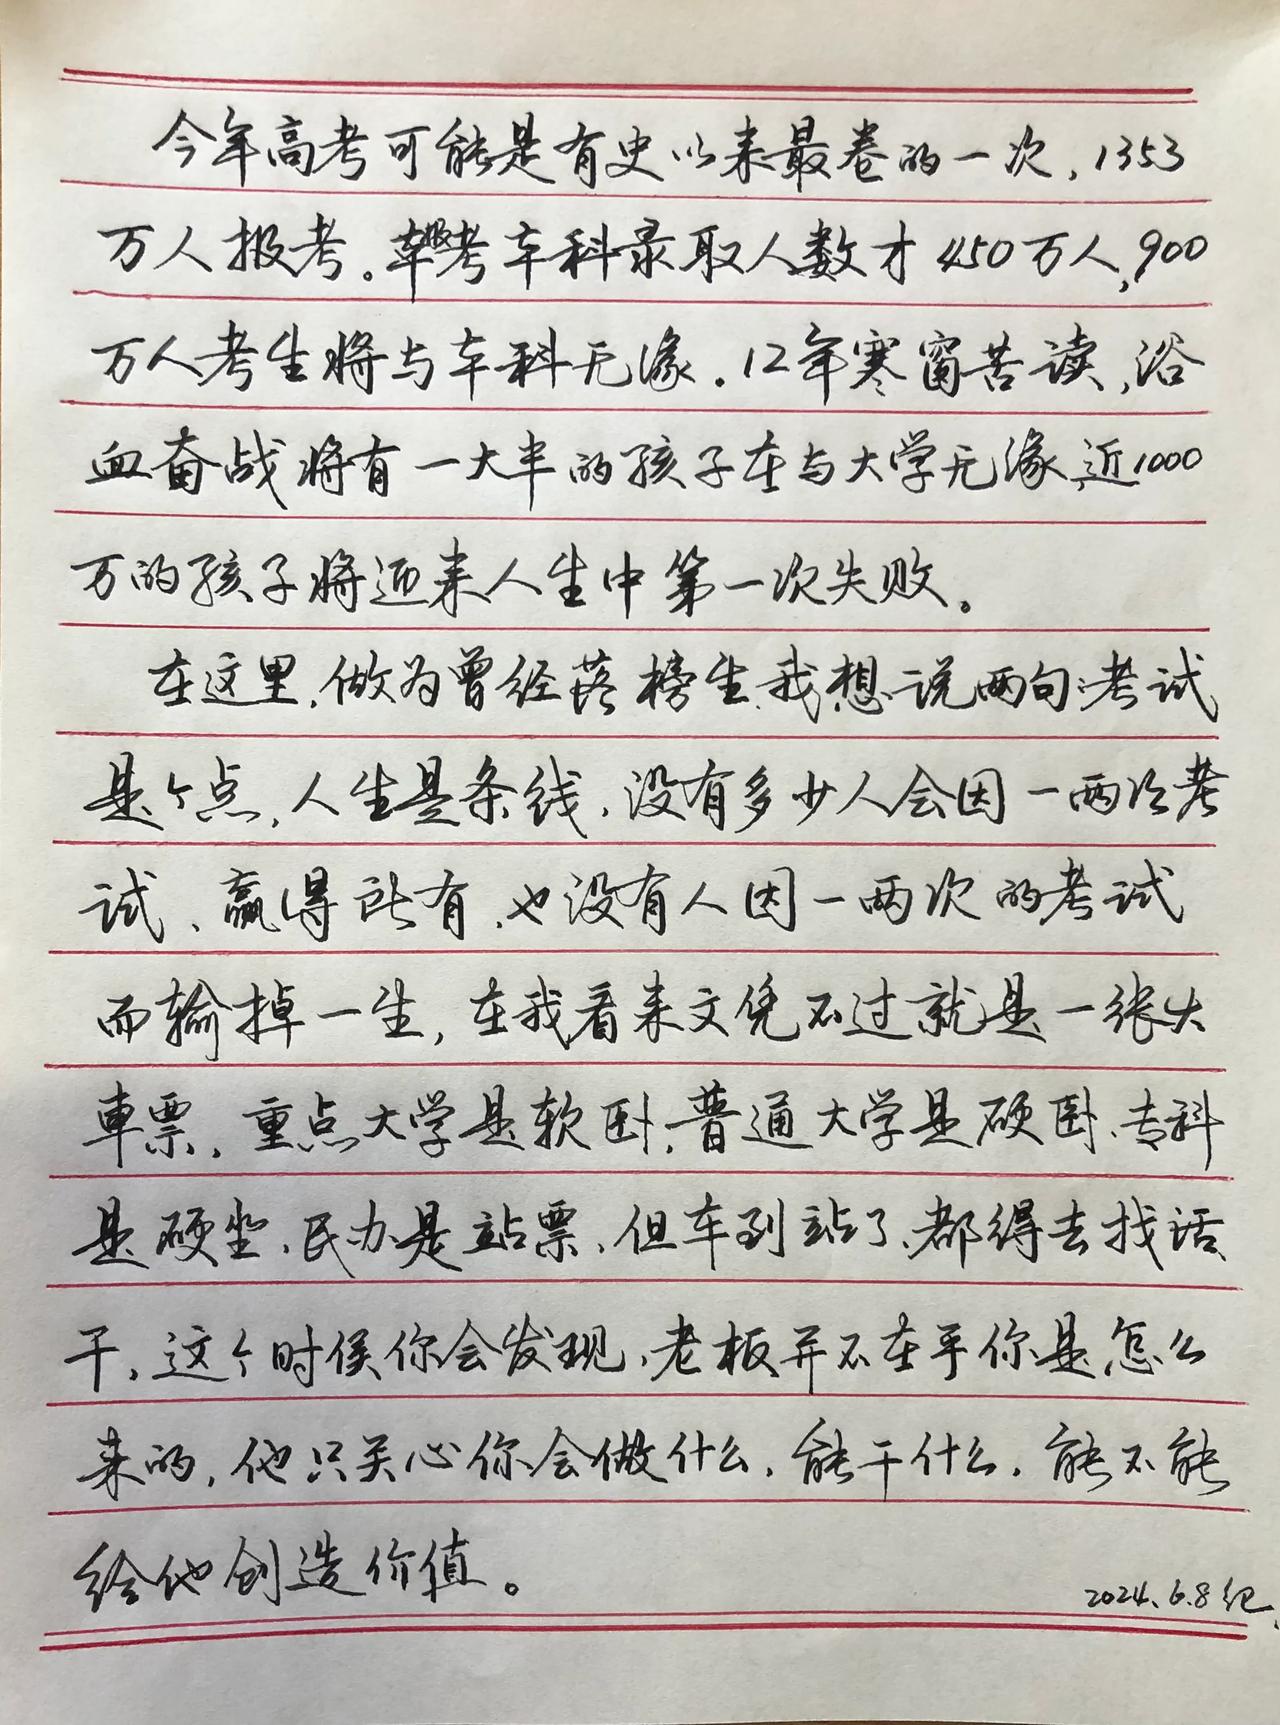 今年高考可能是有史以来最卷的一次，1353
万人报考。考本科录取人数才450万人，900
万人考生将与本科无缘。12年寒窗苦读，浴
血奋战将有一大半的孩子在与大学无缘，近1000
万的孩子将迎来人生中第一次失败。
在这里，做为曾经落榜生，我想说两句：考试
是个点，人生是条线，没有多少人会因一两次考
试、赢得所有，也没有人因一两次的考试
而输掉一生，在我看来文凭不过就是一张火
車票，重点大学是软卧，普通大学是硬卧、专科
是硬坐、民办是站票，但车到站了，都得去找活
干，这个时侯你会发现，老板并不在乎你是怎么
来的，他只关心你会做什么，能干什么，能不能
给他创造价值。
2024.6.8纪